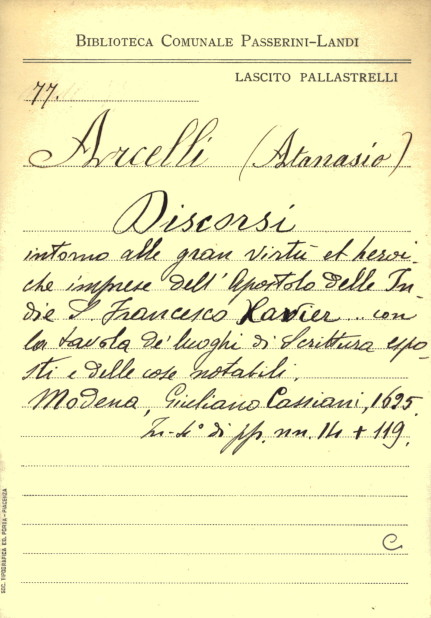 BIBLIOTECA COMUNALE PASSERINI-LANDI
LASCITO PALLASTRELLI
77.
Arcelli (Atanasio)
Discorsi
intorno alle gran virtù et heroi-
che imprese dell' Apostolo delle In-
die S. Francesco Xavier... con
la tavola de' luoghi di Scrittura espo-
sti e delle cose notabili.
Modena, Giuliano Cassiani, 1625.
In-4° di pp. nn. 14 + 119.
C
SOC. TIPOGRAFICA ED. PORTA-PIACENZA